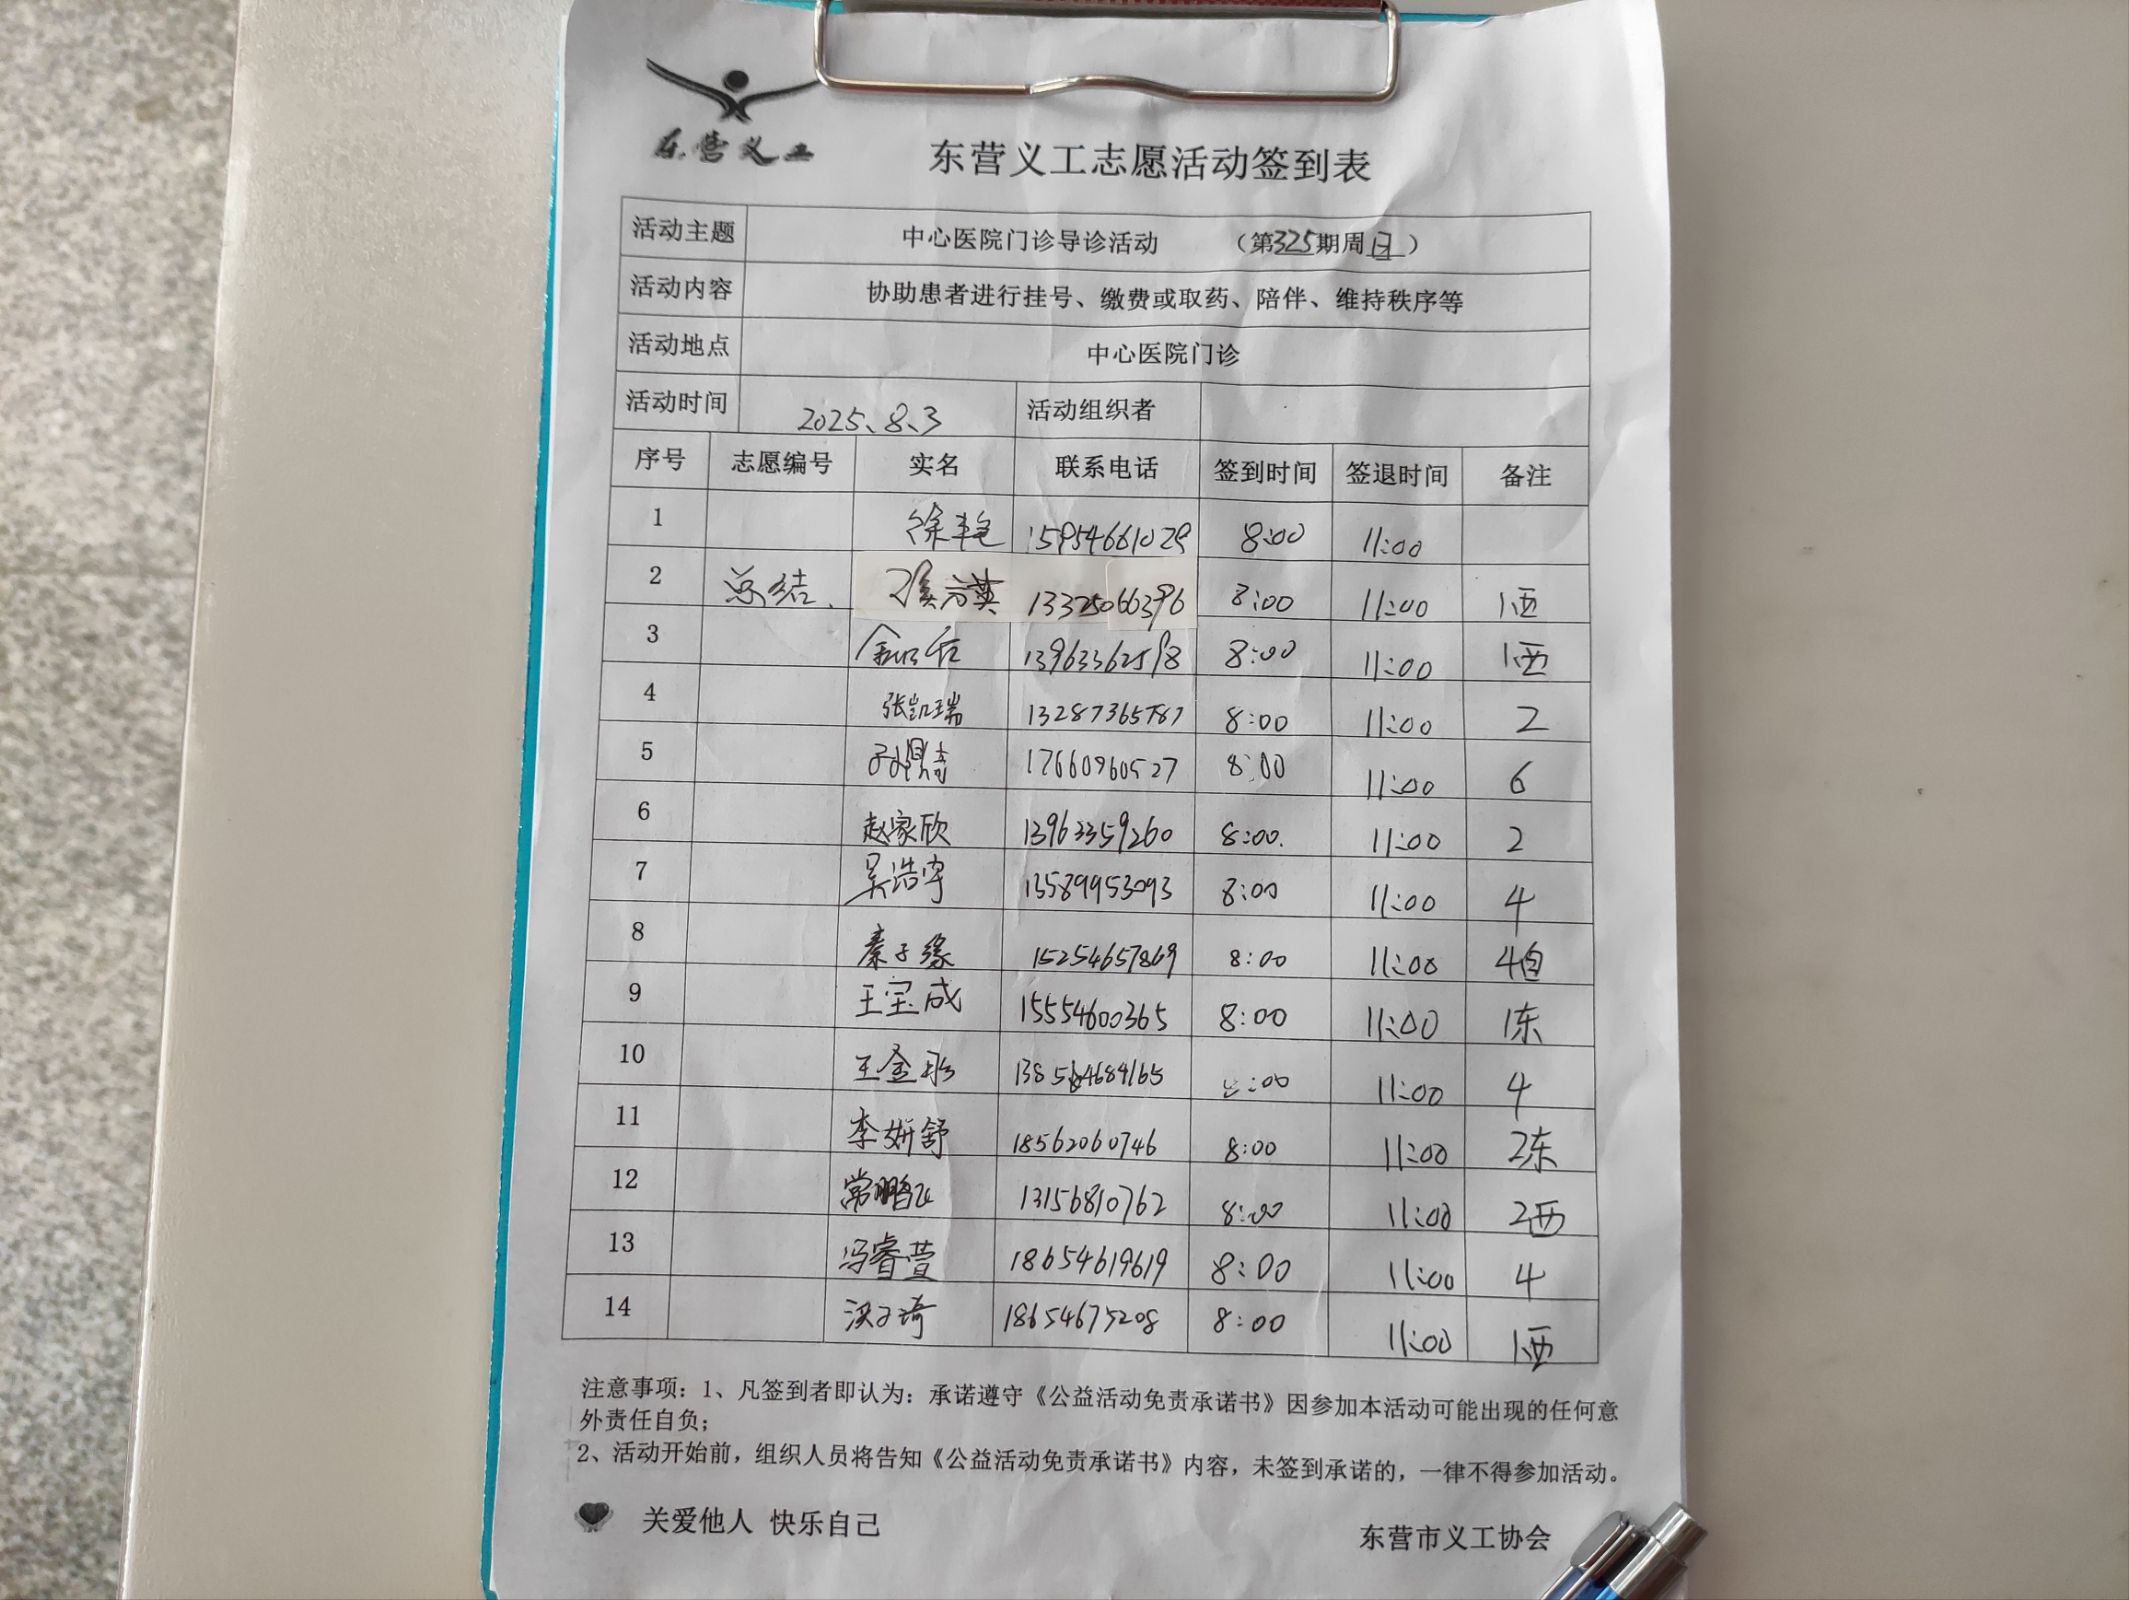 东营义工
东营义工志愿活动签到表
活动主题 中心医院门诊导诊活动 （第325期周日）
活动内容 协助患者进行挂号、缴费或取药、陪伴、维持秩序等
活动地点 中心医院门诊
活动时间 2025、8、3 活动组织者
序号 志愿编号 实名 联系电话 签到时间 签退时间 备注
1 徐丰艳 15954661029 8:00 11:00
2 总结、 13325066396 8:00 11:00 1西
3 13963362598 8:00 11:00 1西
4 张凯瑞 13287365787 8:00 11:00 2
5 17660960527 8:00 11:00 6
6 赵家欣 13963359260 8:00. 11:00 2
7 吴浩宇 13589953093 8:00 11:00 4
8 秦子缘 15254657869 8:00 11:00 4自
9 王宝成 15554600365 8:00 11:00 1东
10 王金彤 8:00 11:00 4
11 李妍舒 18562060746 8:00 11:00 2东
12 常鹏飞 13156810762 8:00 11:00 2西
13 冯睿萱 18654619619 8:00 11:00 4
14 洪子琦 18654675208 8:00 11:00 1西
注意事项：1、凡签到者即认为：承诺遵守《公益活动免责承诺书》因参加本活动可能出现的任何意
外责任自负；
2、活动开始前，组织人员将告知《公益活动免责承诺书》内容，未签到承诺的，一律不得参加活动。
关爱他人 快乐自己 东营市义工协会